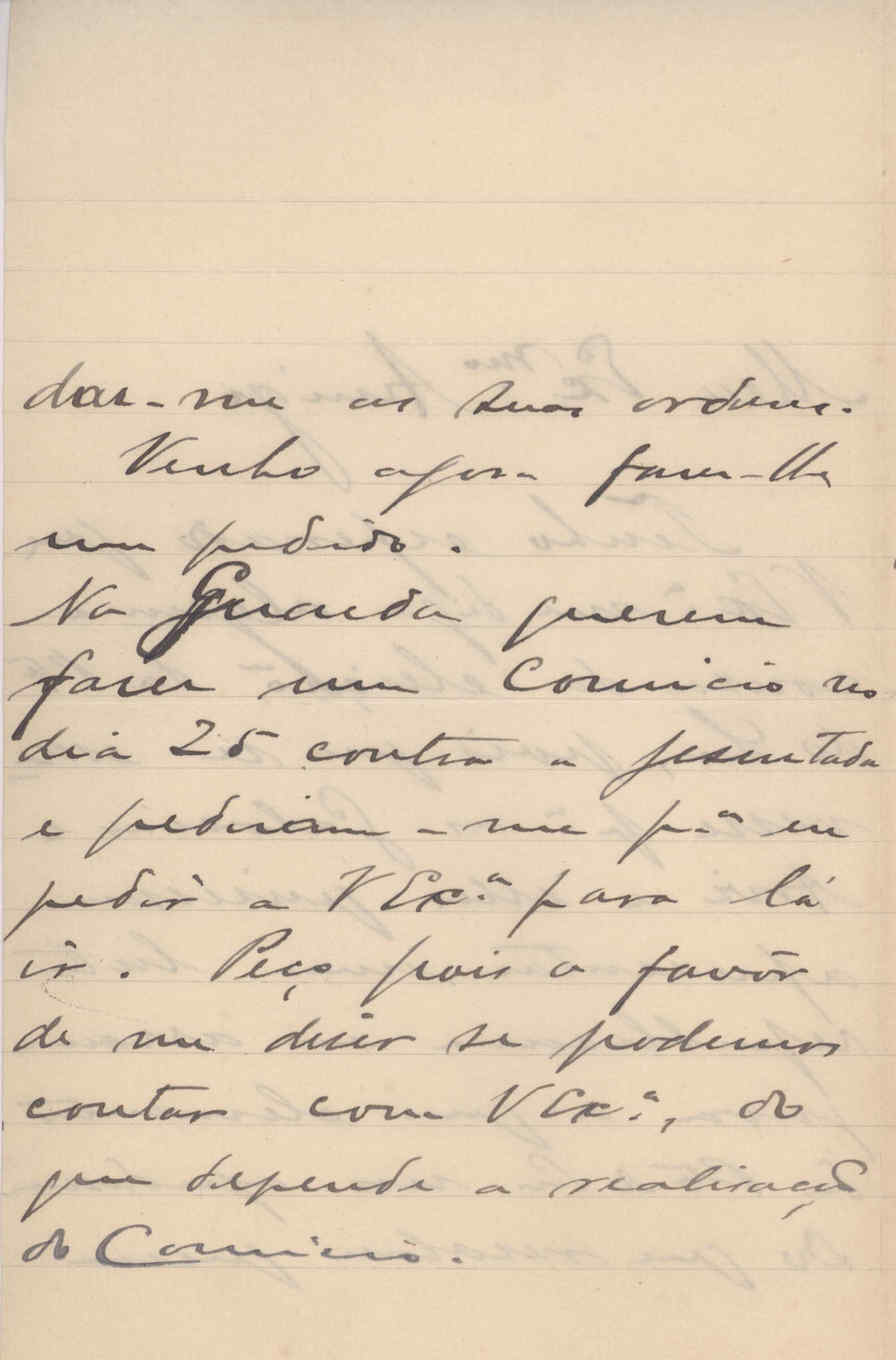 dar-me as suas ordens.
Venho agora fazer-lhe
um pedido.
Na Guarda querem
fazer um Comicio no
dia 25 contra a jesuitada
e pediram-me p.ª eu
pedir a V Exc.ª para lá
ir. Peço pois o favôr
de me dizer se podemos
contar com V Exc.ª, do
que depende a realisação
do Comicio.